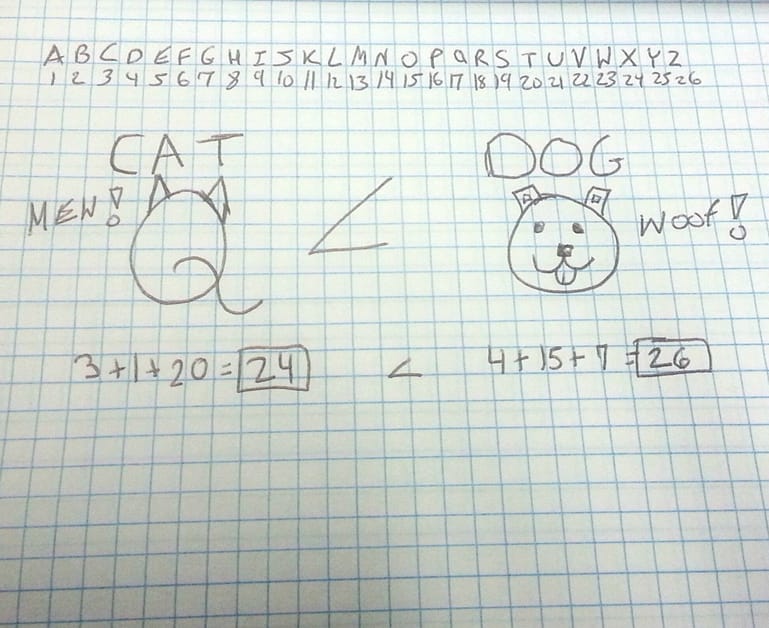 A B C D E F G H I J K L M N O P Q R S T U V W X Y Z
1 2 3 4 5 6 7 8 9 10 11 12 13 14 15 16 17 18 19 20 21 22 23 24 25 26
CAT DOG
MEW! < WOOF!
3+1+20=24 < 4+15+7=26